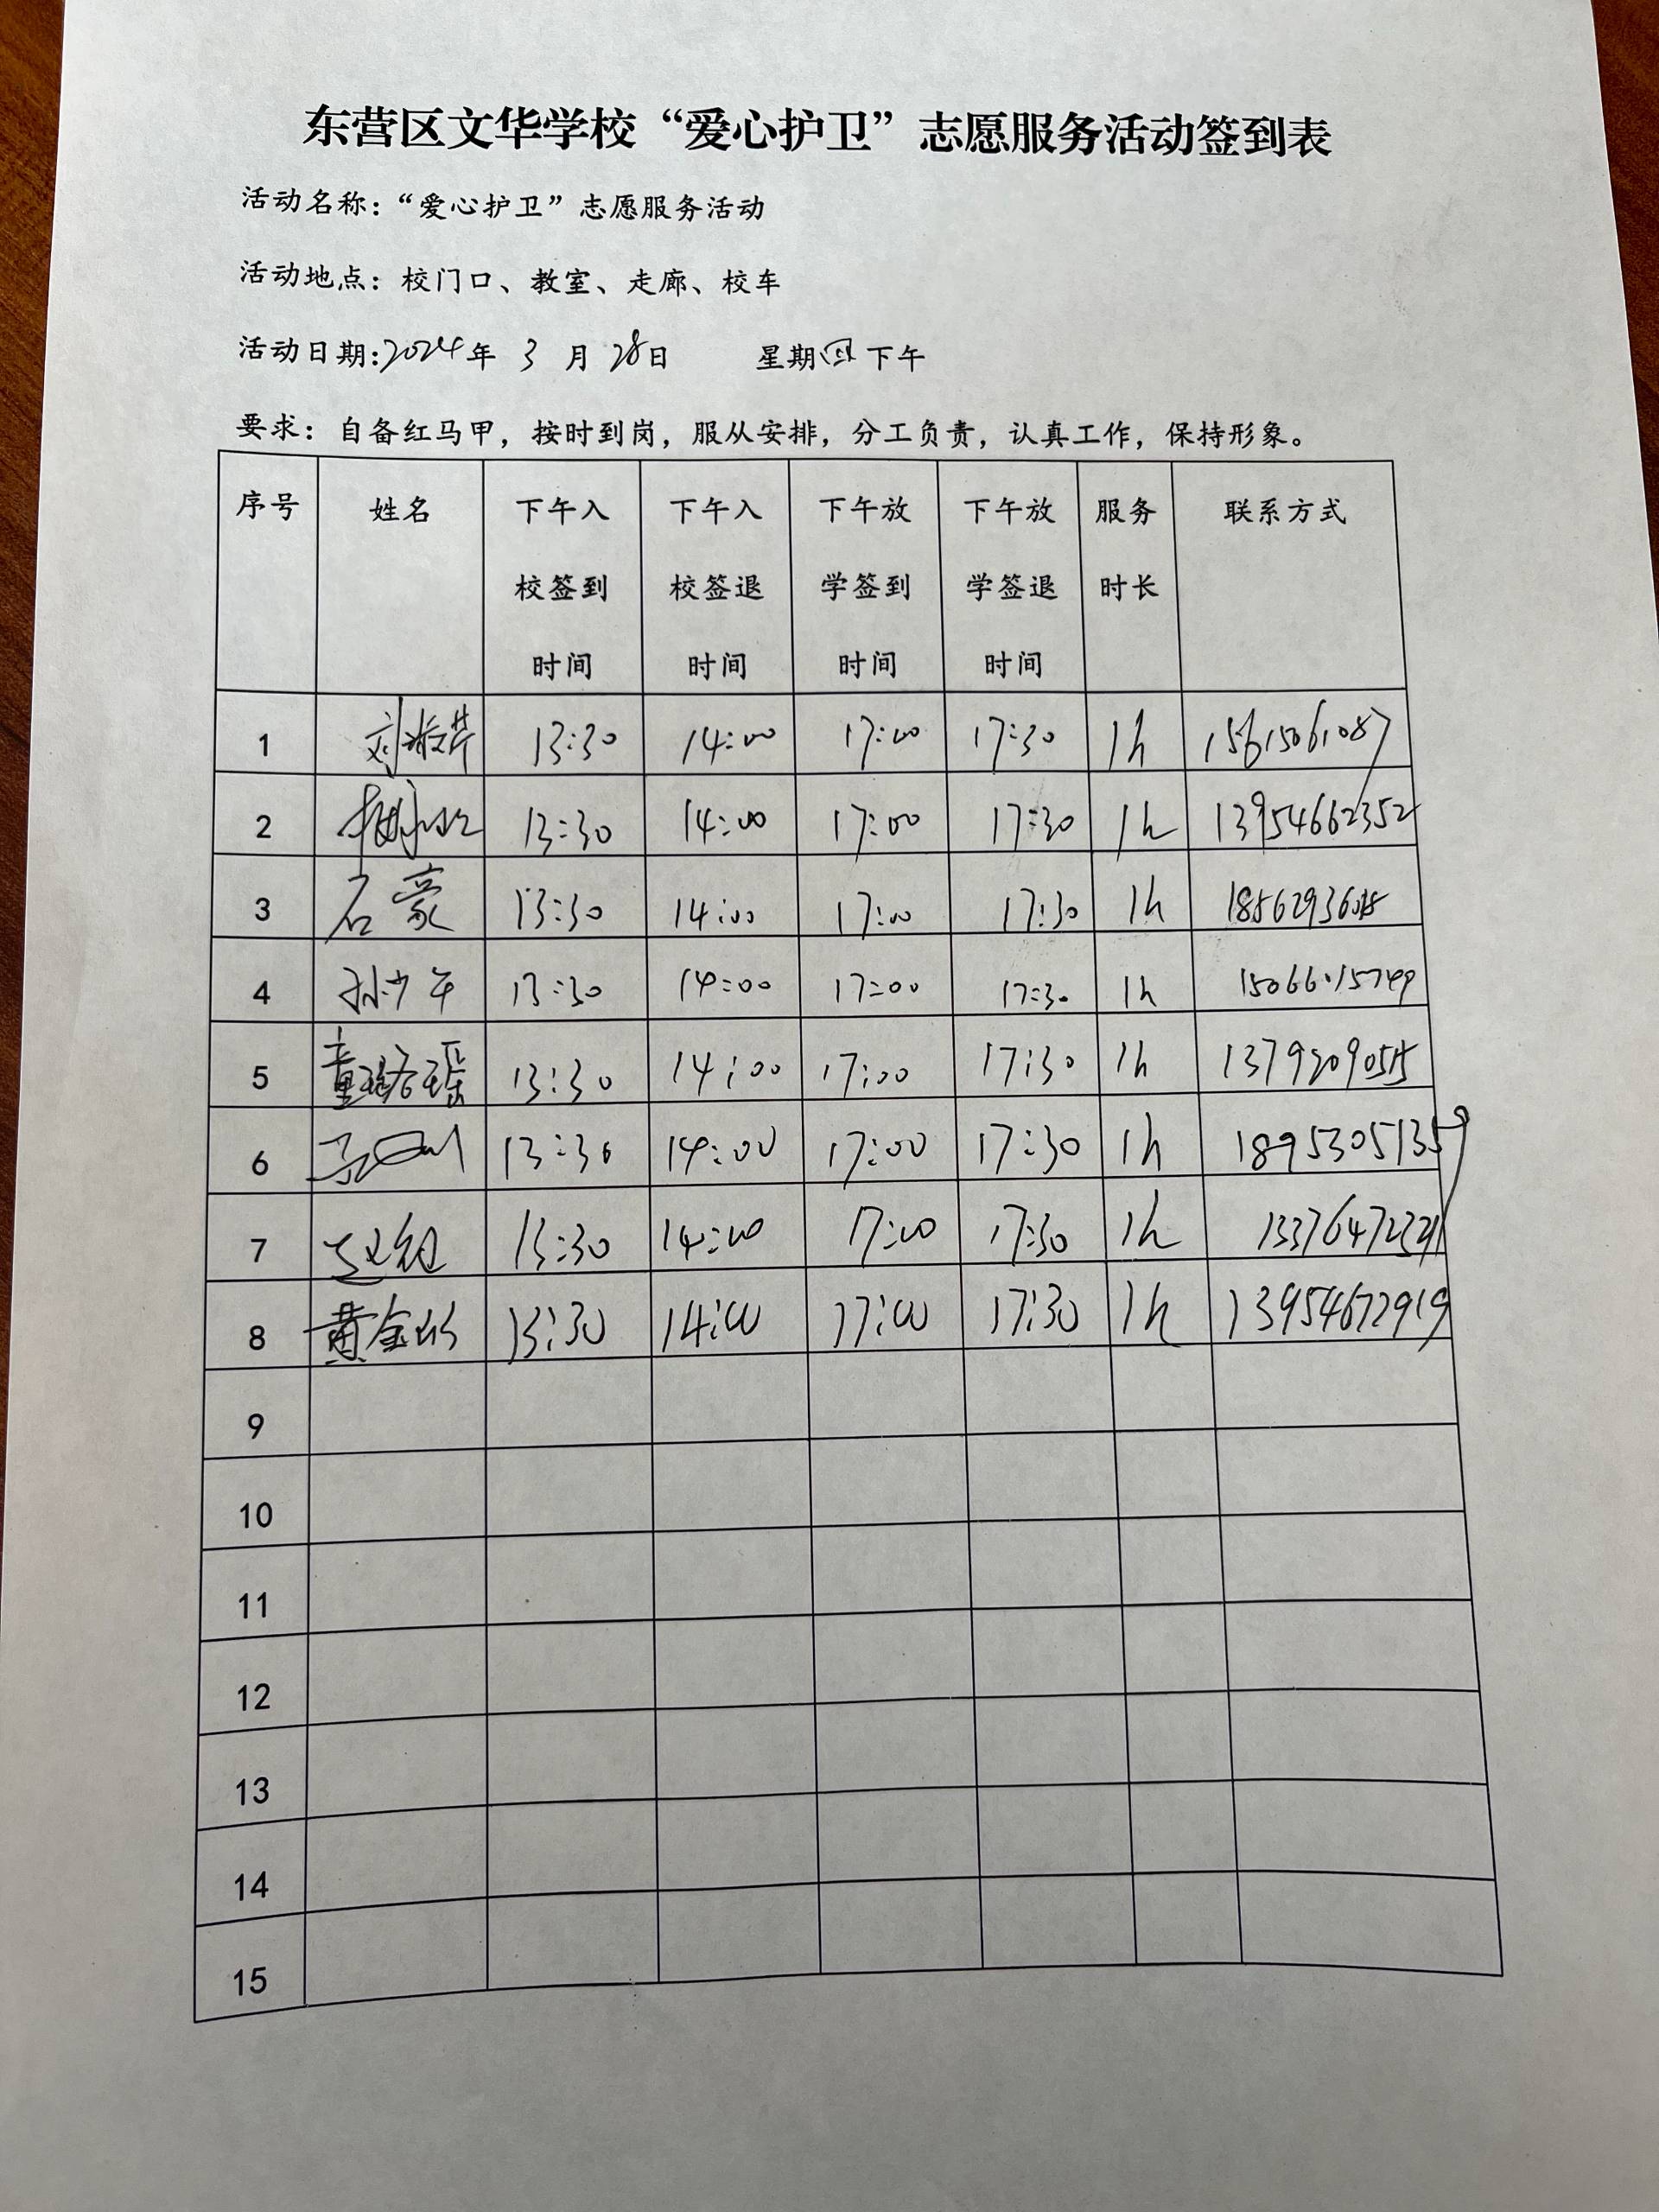 东营区文华学校“爱心护卫”志愿服务活动签到表
活动名称：“爱心护卫”志愿服务活动
活动地点：校门口、教室、走廊、校车
活动日期:2024年 3 月 28日 星期四下午
要求：自备红马甲，按时到岗，服从安排，分工负责，认真工作，保持形象。
序号 姓名 下午入校签到时间 下午入校签退时间 下午放学签到时间 下午放学签退时间 服务时长 联系方式
1 13:30 14:00 17:00 17:30 1h 15615061087
2 13:30 14:00 17:00 17:30 1h 13954662352
3 石豪 13:30 14:00 17:00 17:30 1h
4 孙少军 13:30 14:00 17:00 17:30 1h 15066015749
5 13:30 14:00 17:00 17:30 1h
6 13:30 14:00 17:00 17:30 1h 18953051359
7 13:30 14:00 17:00 17:30 1h
8 13:30 14:00 17:00 17:30 1h 13954672919
9
10
11
12
13
14
15